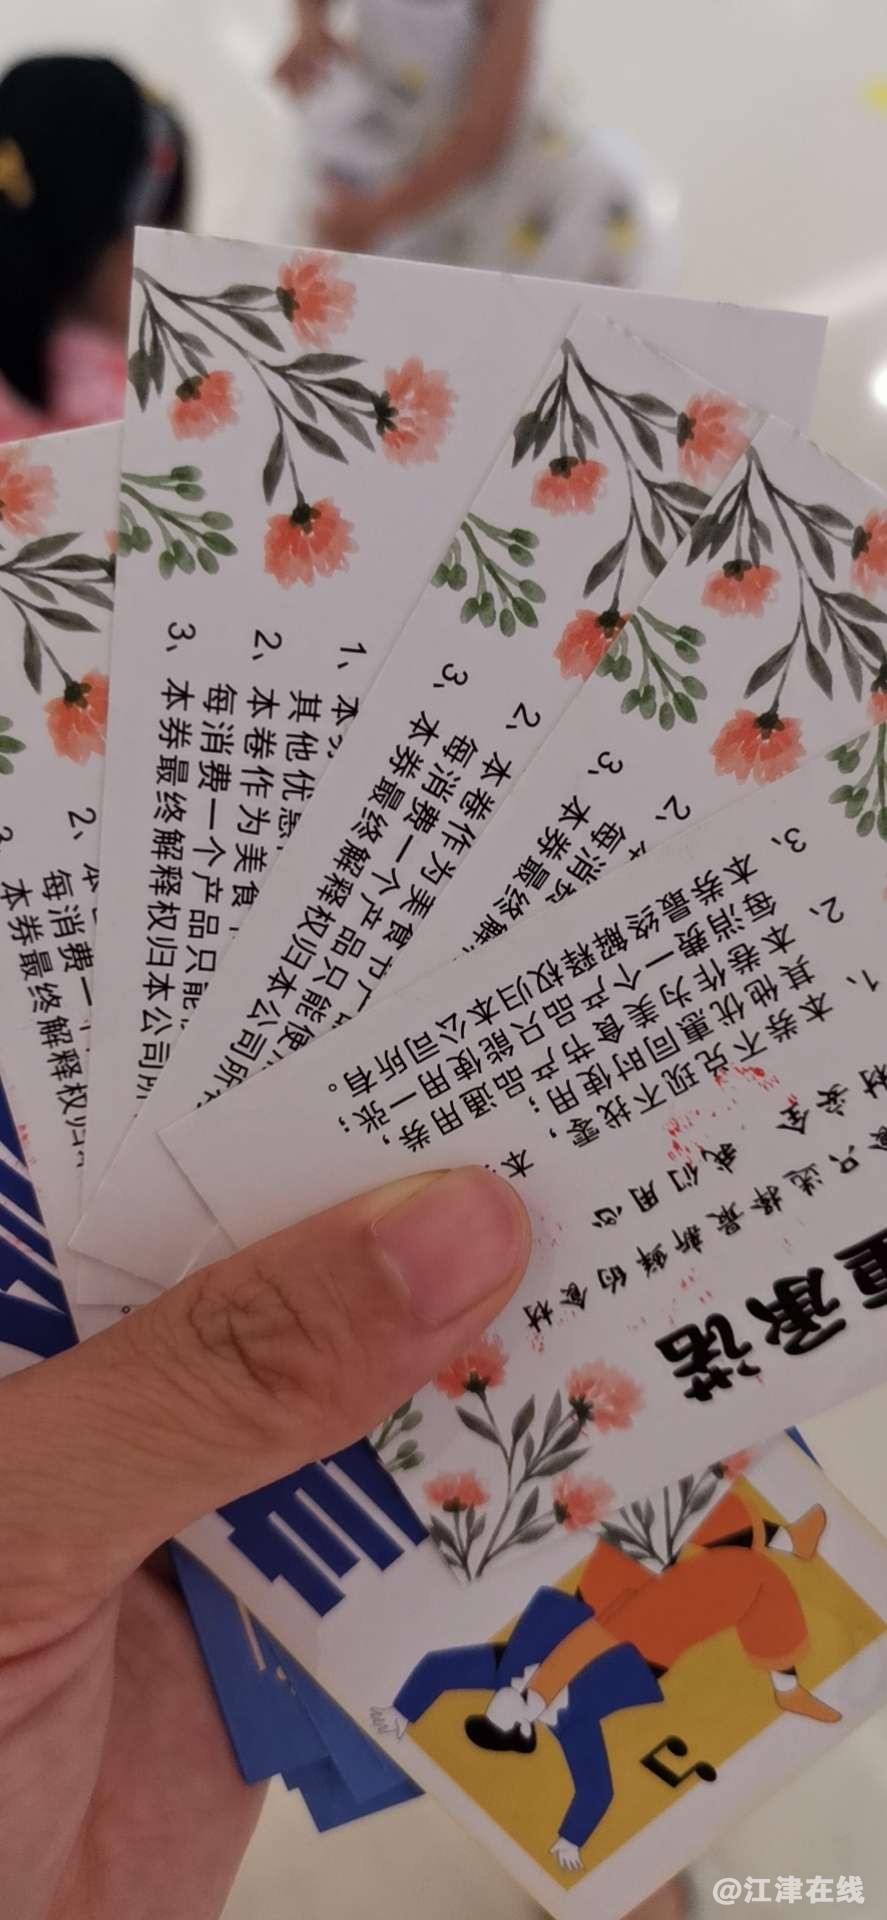 2、
每消费一
3、本券最终解释权归
1、本
其他优惠
2、本卷作为美食
每消费一个产品只能
3、本券最终解释权归本公司所
2、本卷作为美食节产
每消费一个产品只能使
3、本券最终解释权归本公司所
2、
每消费
3、本券最终解
1、本券不兑现不找零，本
其他优惠同时使用；
2、本卷作为美食节产品通用券，
每消费一个产品只能使用一张；
3、本券最终解释权归本公司所有。
材安全 我们用心
只选择最新鲜的食材
重承诺
@江津在线